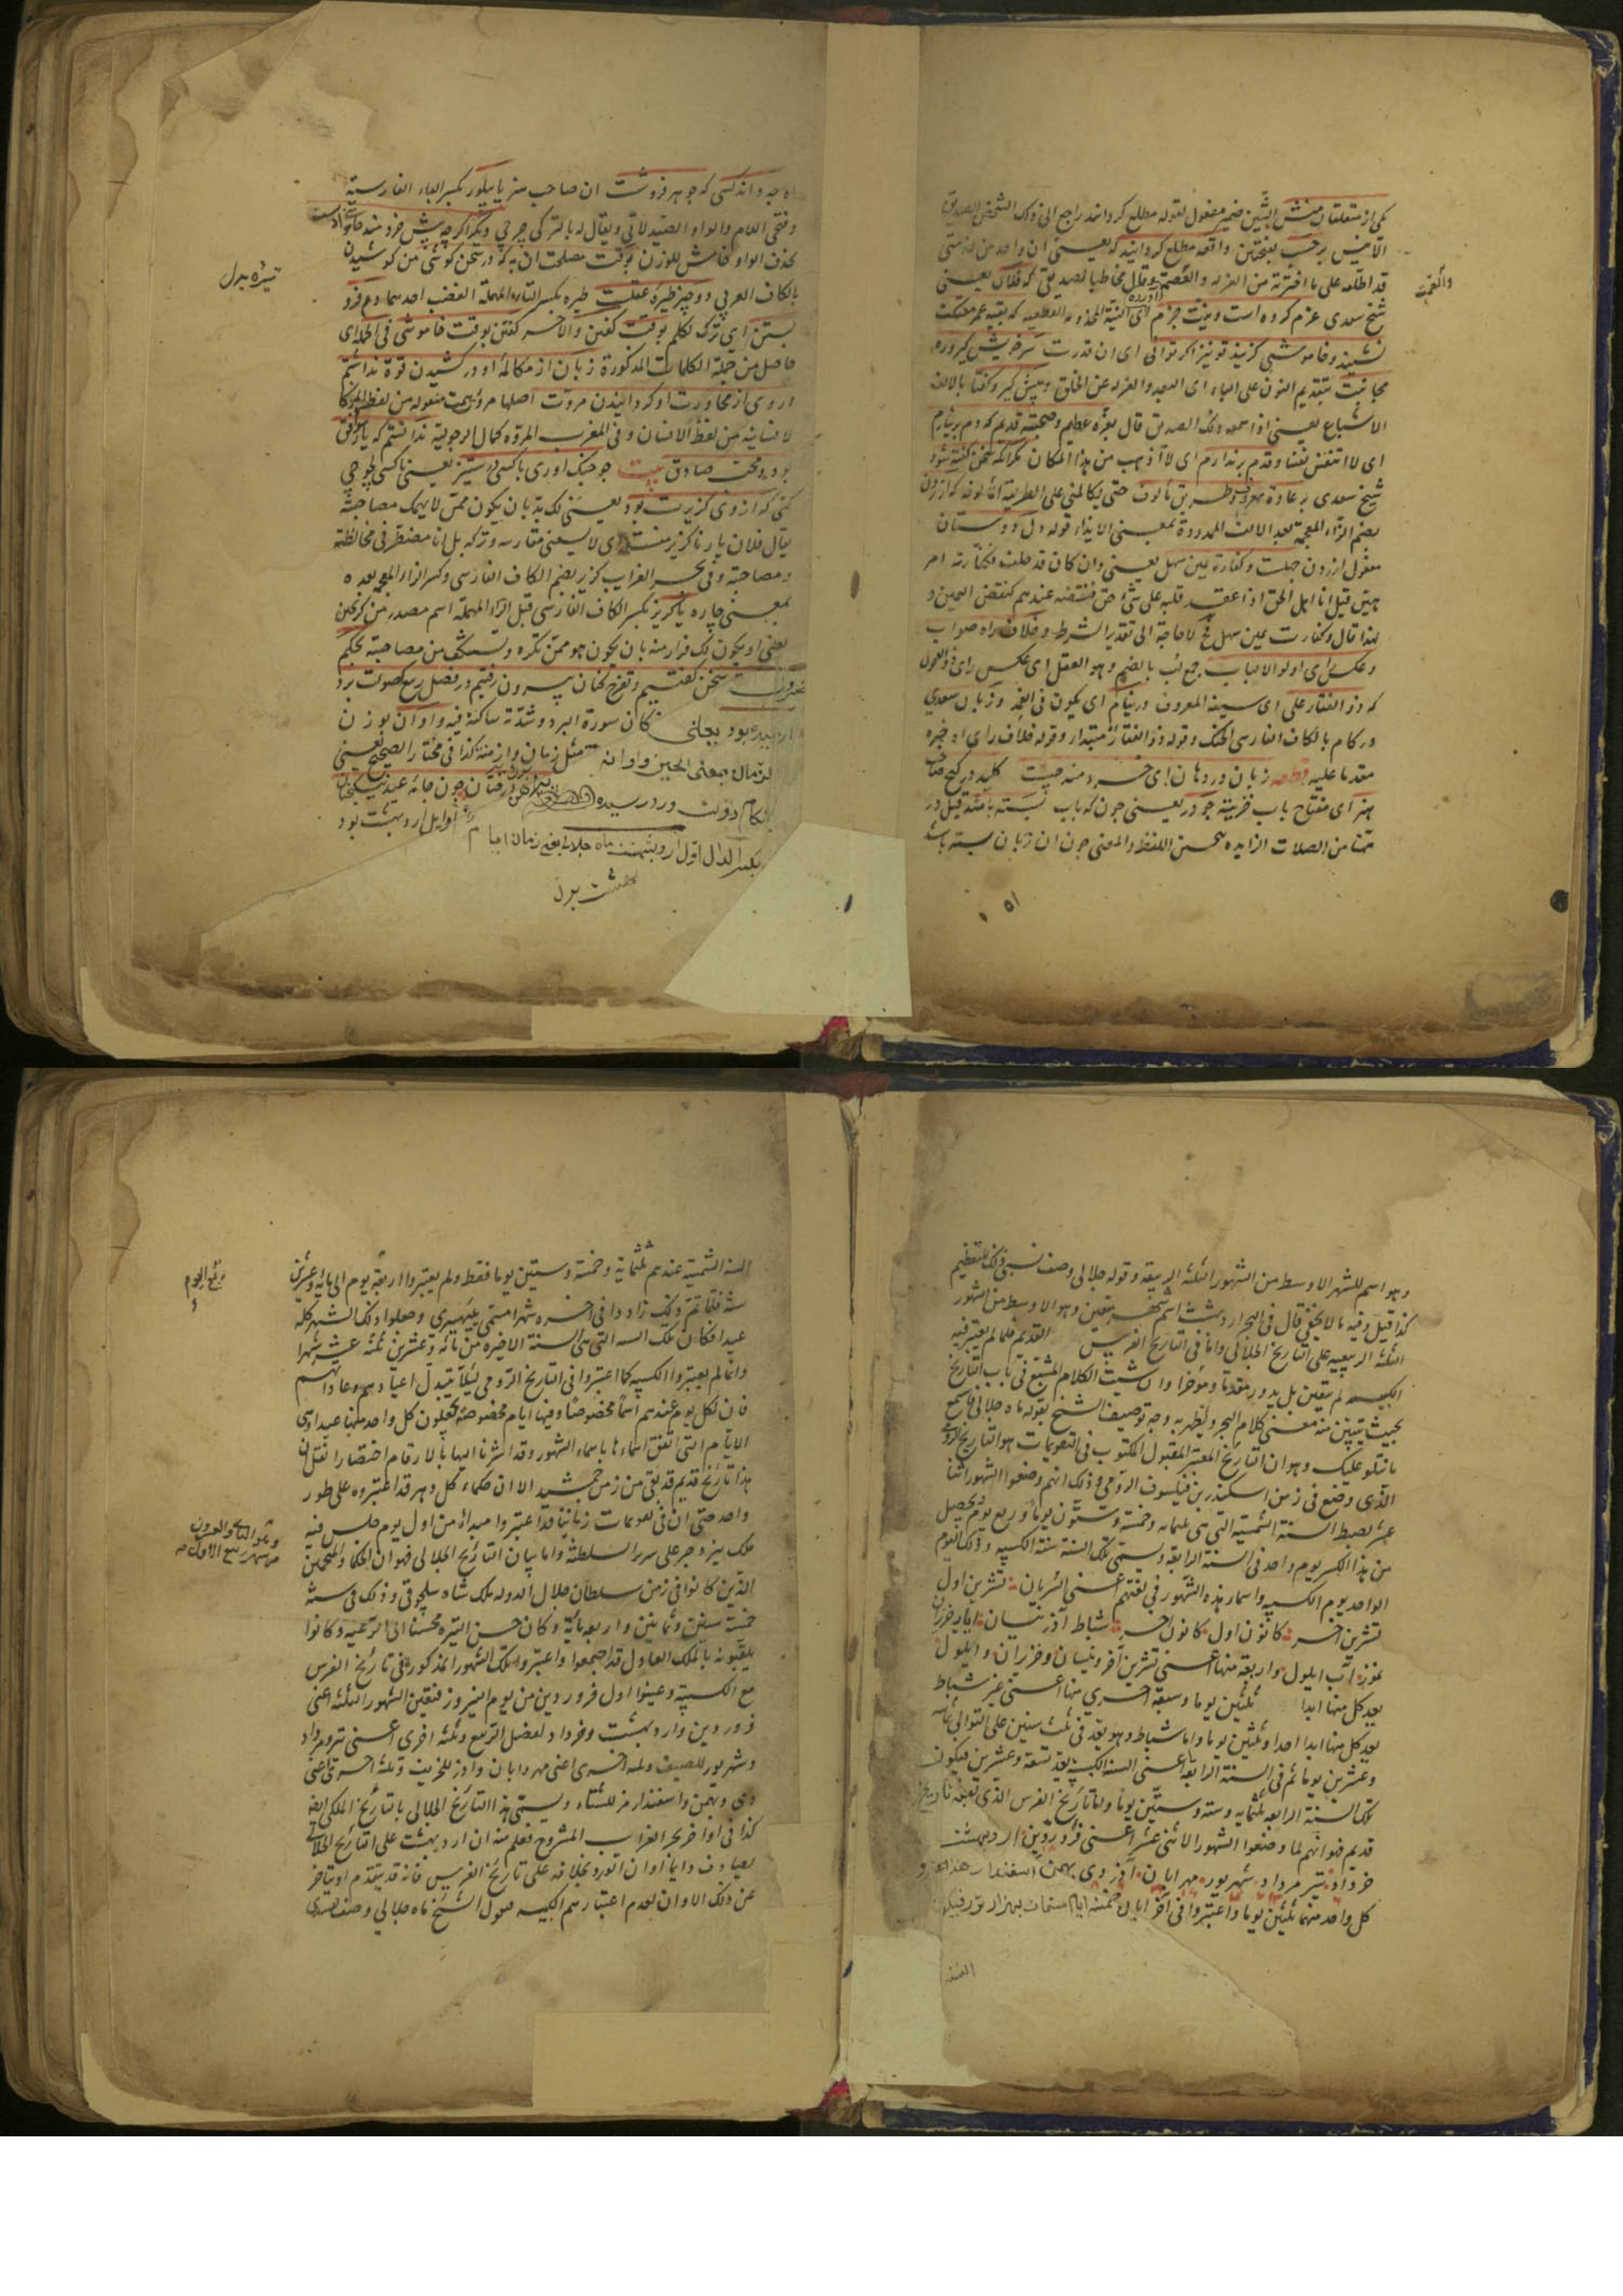 یکی از متعلقان منش الشین ضمیر مفعول لقوله مطلع کردانند راجع الی ذلک الشخص الصدیق
الانیس بر حسب بفتحتین واقعه مطلع کردانید که یعنی ان واحد من
قد اطلعه علی ما اقترنه من العزله والعصمة وقال مخاطبا لصدیقی که فلان یعنی
والعصمت
شیخ سعدی عزم کرده است ونیت جزم ای النیة که بقیه عمر معتکف
نشیند وخاموشی کزیند تو نیز اکر توانی ای ان قدرت سر خویش کیر وره
مجانبت بتقدیم النون علی الباء ای البعد والعزله عن الخلق وپیش کیر وکفتا بالالف
الاشباع یعنی اذا سمعه ذلک الصدیق قال بعزة عظیم وصحبت قدیم که دم برنیارم
ای لا اتنفس نفسا وقدم برندارم ای لا اذهب من هذا المکان مکر انکه سخن کفته شود
شیخ سعدی بر عادة معروف وطریق مألوف حتی یکالمنی علی الطریقة المألوفه که ازردن
بضم الزاء المعجمة بعد الالف الممدودة بمعنی الایذاء قوله دل دوستان
مفعول ازردن جهلست وکفارة یمین سهل یعنی وان کان قد حلف فکفارته امر
هین قیل انا اهل الحق اذا عقد قلبه علی شئ حتی فنقضه عندهم کنقض الیمین و
لهذا قال وکفارت یمین سهل لا حاجة الی تقدیر الشرط وخلاف راه صواب
وعکس رای اولو الالباب جمع لب بالضم وهو العقل ای عکس رای ذوی العقول
که ذو الفقار علی ای سیفه المعروف در نیام ای یکون فی الغمد وزبان سعدی
در کام بالکاف الفارسی الحنک وقوله ذو الفقار مبتدا وقوله خلاف رای اه خبره
مقدما علیه قطعه زبان در دهان ای خردمند چیست کلید در کنج صاحب
هنر ای مفتاح باب خزینة جو در یعنی جون که باب بسته باشد قیل در
ههنا من الصلات الزایده لحسن اللفظ والمعنی جون ان زبان بسته باشد
۱۵۱
جه داند کسی که جوهر فروشت ان صاحب هنر یا پیلور بکسر الباء الفارسیة
وفتحی اللام والواو الصیدلانی ویقال له بالترکی چرچی دیکر اکرچه پیش خردمند خاموشی ادبست
بحذف الواو خامش للوزن بوقت مصلحت ان به که در سخن کوشی من کوشیدن
تیره بدل
بالکاف العربی دو چیز طیره عقلست طیره بکسر التاء المهملة الغضب احدهما دم فرو
بستن ای ترک تکلم بوقت کفتن والاخر کفتن بوقت خاموشی فی الجمله ای
حاصل من جملة الکلمات المذکورة زبان از مکالمه او در کشیدن قوة نداشتم
وروی از محاورت او کردانیدن مروت اصلها مروئة منقوله من لفظ المرء
لانسانیه من لفظ الانسان وفی المغرب المروة کمال الرجولیة ندانستم که یار موافق
بود ومحب صادق بیت جو جنک اوری با کسی در ستیز یعنی ناکسی لجوجی
کنی که از وی کزیرت بود یعنی لک بد بان یکون ممن لا یهمک مصاحبته
یقال فلان یار ناکزیر منست ای لا یسعنی مفارقته وترکه بل انا مضطر فی مخالطته
ومصاحبته وفی بحر الغرایب کزیر بضم الکاف الفارسی وکسر الزاء المعجمه بعده
بمعنی چاره یا کریز بکسر الکاف الفارسی قبل الراء المهملة اسم مصدر من کریختن
یعنی او یکون لک فرار منه بان یکون هو ممن تکره وتستنکف من مصاحبته بحکم
ضرورت سخن کفتیم وتفرج کنان بیرون رفتیم در فصل ربیع که صولت برد
ارمیده بود یعنی کان سورة البرد وشدته ساکنة فیه واوان بوزن
الزمان بمعنی الحین واوانه مثل زمان وازمنة کذا فی مختار الصحاح یعنی
ایام دولت ورد رسیده پیراهن سبز بر درختان جون جامه عید نیکبختان
بکسر الدال اول اردیبهشت ماه جلالی یعنی زمان ایام اوایل اردیبهشت بود
بهشت بدل
وهو اسم للشهر الاوسط من الشهور الثلثة الربیعة وقوله جلالی وصف نسبی ذلک للتعظیم
کذا قیل وفیه ما لا یخفی قال فی البحر اردیبهشت اسم شهر معین وهو الاوسط من الشهور
الثلثة الربیعیه علی التاریخ الجلالی واما فی التاریخ الفرس القدیم فلما لم یعتبر فیه
الکبیسه لم یتعین بل یدور مقدما ومؤخرا وان شئت الکلام المشبع فی باب التاریخ
بحیث یتبین منه معنی کلام البحر ویظهر به وجه توصیف الشیخ بقوله ماه جلالی فاسمع
ما نتلو علیک وهو ان التاریخ المعتبر المقبول المکتوب فی التقویمات هو التاریخ الرومی
الذی وضع فی زمن اسکندر بن فیلسوف الرومی وذلک انهم وضعوا الشهور اثنا
عشر لضبط السنة الشمسیة التی هی ثلثمایه وخمسة وستون یوما وربع یوم یحصل
من هذا الکسر یوم واحد فی السنة الرابعة ویسمی تلک السنة سنة الکبیسه وذلک الیوم
الواحد یوم الکبیسه واسماء هذه الشهور فی لغتهم اعنی السریان تشرین اول
تشرین اخر کانون اول کانون اخر شباط اذر نیسان ایار حزیران
تموز اب ایلول واربعة منها اعنی تشرین آخر ونیسان وحزیران وایلول
یعد کل منها ابدا ثلثین یوما وسبعة اخری منها اعنی غیر شباط
یعد کل منها ابدا احدا وثلثین یوما واما شباط وهو یعد فی ثلث سنین علی التوالی ثمانیه
وعشرین یوما ثم فی السنة الرابعة اعنی السنة الکبیسة یعد تسعة وعشرین فیکون
تلک السنة الرابعة ثلثمایه وستة وستین یوما واما تاریخ الفرس الذی تعبد تاریخ
قدیم فهو انهم لما وضعوا الشهور الاثنی عشر اعنی فروردین اردیبهشت
خرداد تیر مرداد شهریور مهر ابان آذر دی بهمن اسفندار
کل واحد منهما ثلثین یوما واعتبروا فی آخر ابان خمسة ایام
السنة
السنة الشمسیة عندهم ثلثمایة وخمسة وستین یوما فقط ولم یعتبروا اربعة یوم الی مایة وعشرین
ربع الیوم
سنة فلما تم ذلک زادوا فی اخره شهرا مسمی وجعلوا ذلک الشهر کله
عیدا فکان تلک السنه التی هی السنة الاخیرة من مائة وعشرین ثلثة عشر شهرا
وانما لم یعتبروا الکبیسه کما اعتبروا فی التاریخ الرومی لئلا یتبدل اعیادهم وعاداتهم
فان لکل یوم عندهم اسما مخصوصا وفیها ایام مخصوصة یجعلون کل واحد منها عیدا وهی
الایام التی اتفق اسماءها باسماء الشهور وقد اشرنا الیها بالارقام اختصارا نقل ان
هذا تاریخ قدیم قد بقی من زمن جمشید الا ان حکماء کل دهر قد اعتبروه علی طور
واحد حتی ان فی تقویمات زماننا قد اعتبروا مبدأه من اول یوم جلس فیه
وهو الثانی والعشرون من شهر ربیع الاول
ملک یزدجرد علی سریر السلطنة واما بیان التاریخ الجلالی فهو ان الحکماء والمنجمین
الذین کانوا فی زمن سلطان جلال الدوله ملک شاه سلجوقی وذلک فی سنة
خمسة سنین وثمانین واربعمایة وکان حسن السیرة محسنا الی الرعیه وکانوا
یلقبونه بالملک العادل قد اجتمعوا واعتبروا تلک الشهور المذکورة فی تاریخ الفرس
مع الکبیسة وعینوا اول فروردین من یوم النیروز فتعین الشهور الثلثة اعنی
فروردین واردیبهشت وخرداد لفصل الربیع وثلثة اخری اعنی تیر ومرداد
وشهریور للصیف وثلثة اخری اعنی مهر وابان واذر للخریف وثلثة اخری اعنی
دی وبهمن واسفندارمز للشتاء ویسمی هذا التاریخ الجلالی بالتاریخ الملکی ایضا
کذا فی اواخر بحر الغراب المشروح فعلم منه ان اردیبهشت علی التاریخ الجلالی
یصادف دایما اوان الورد بخلافه علی تاریخ الفرس فانه قد یتقدم او یتاخر
عن ذلک الاوان لعدم اعتبارهم الکبیسه فقول الشیخ ماه جلالی وصف تقییدی